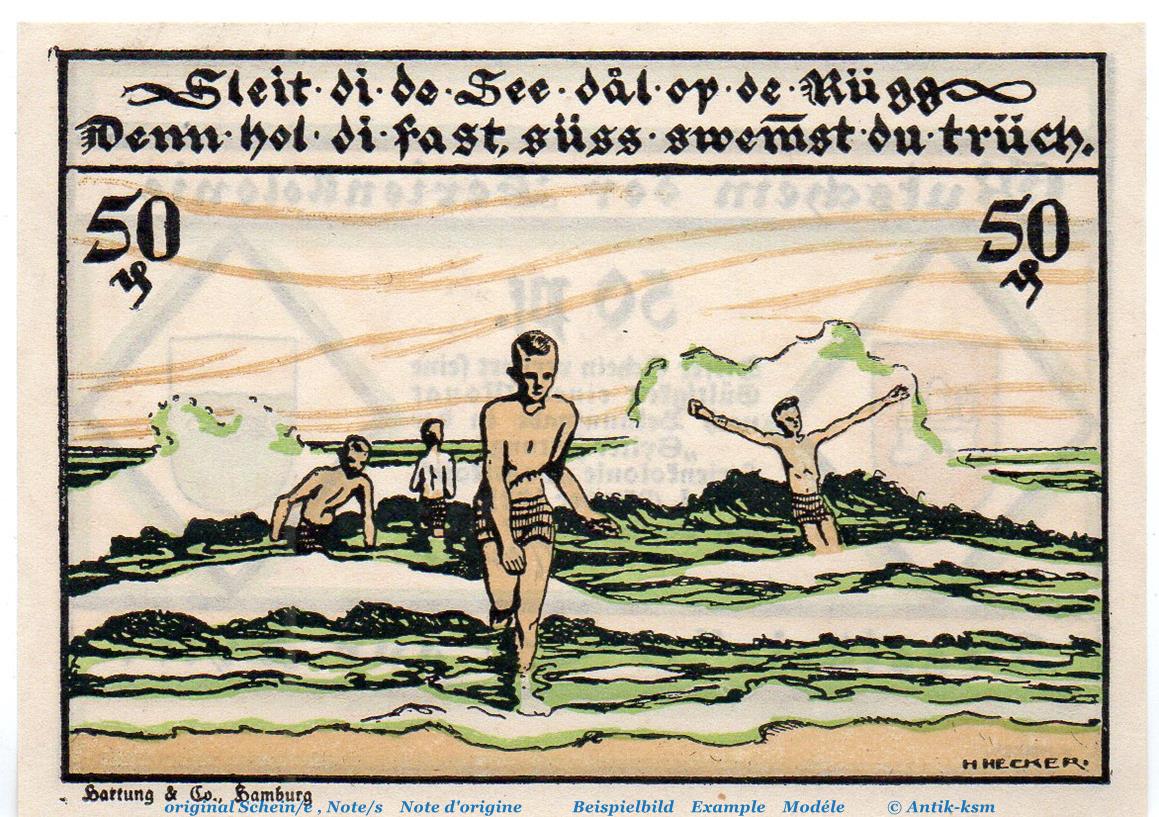 Sleit · di · de · See · dål · op · de · Rügg
Denn · hol · di · fast, süss · swem̅st · du · trüch.
50
₰
50
₰
H HECKER.
Hartung & Co., Hamburg
original Schein/e , Note/s Note d'origine Beispielbild Example Modéle © Antik-ksm